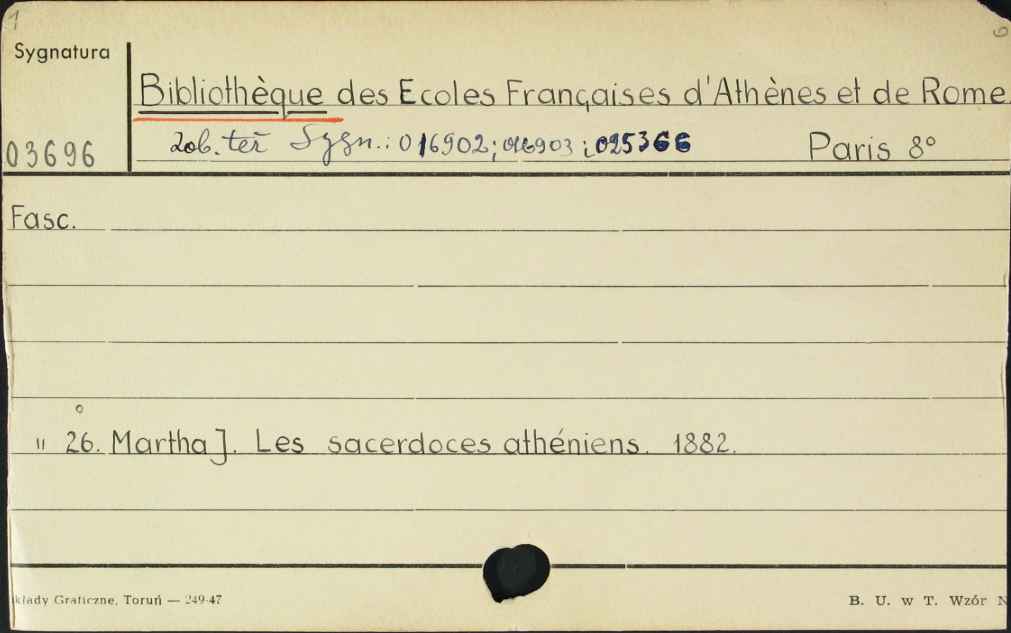 1
6
Sygnatura
Bibliothèque des Ecoles Françaises d'Athènes et de Rome
03696
Zob. też Sygn.: 016902; 016903; 025366
Paris 8°
Fasc.
" 26. Martha J. Les sacerdoces athéniens. 1882.
kłady Graficzne, Toruń — 249-47
B. U. w T. Wzór N